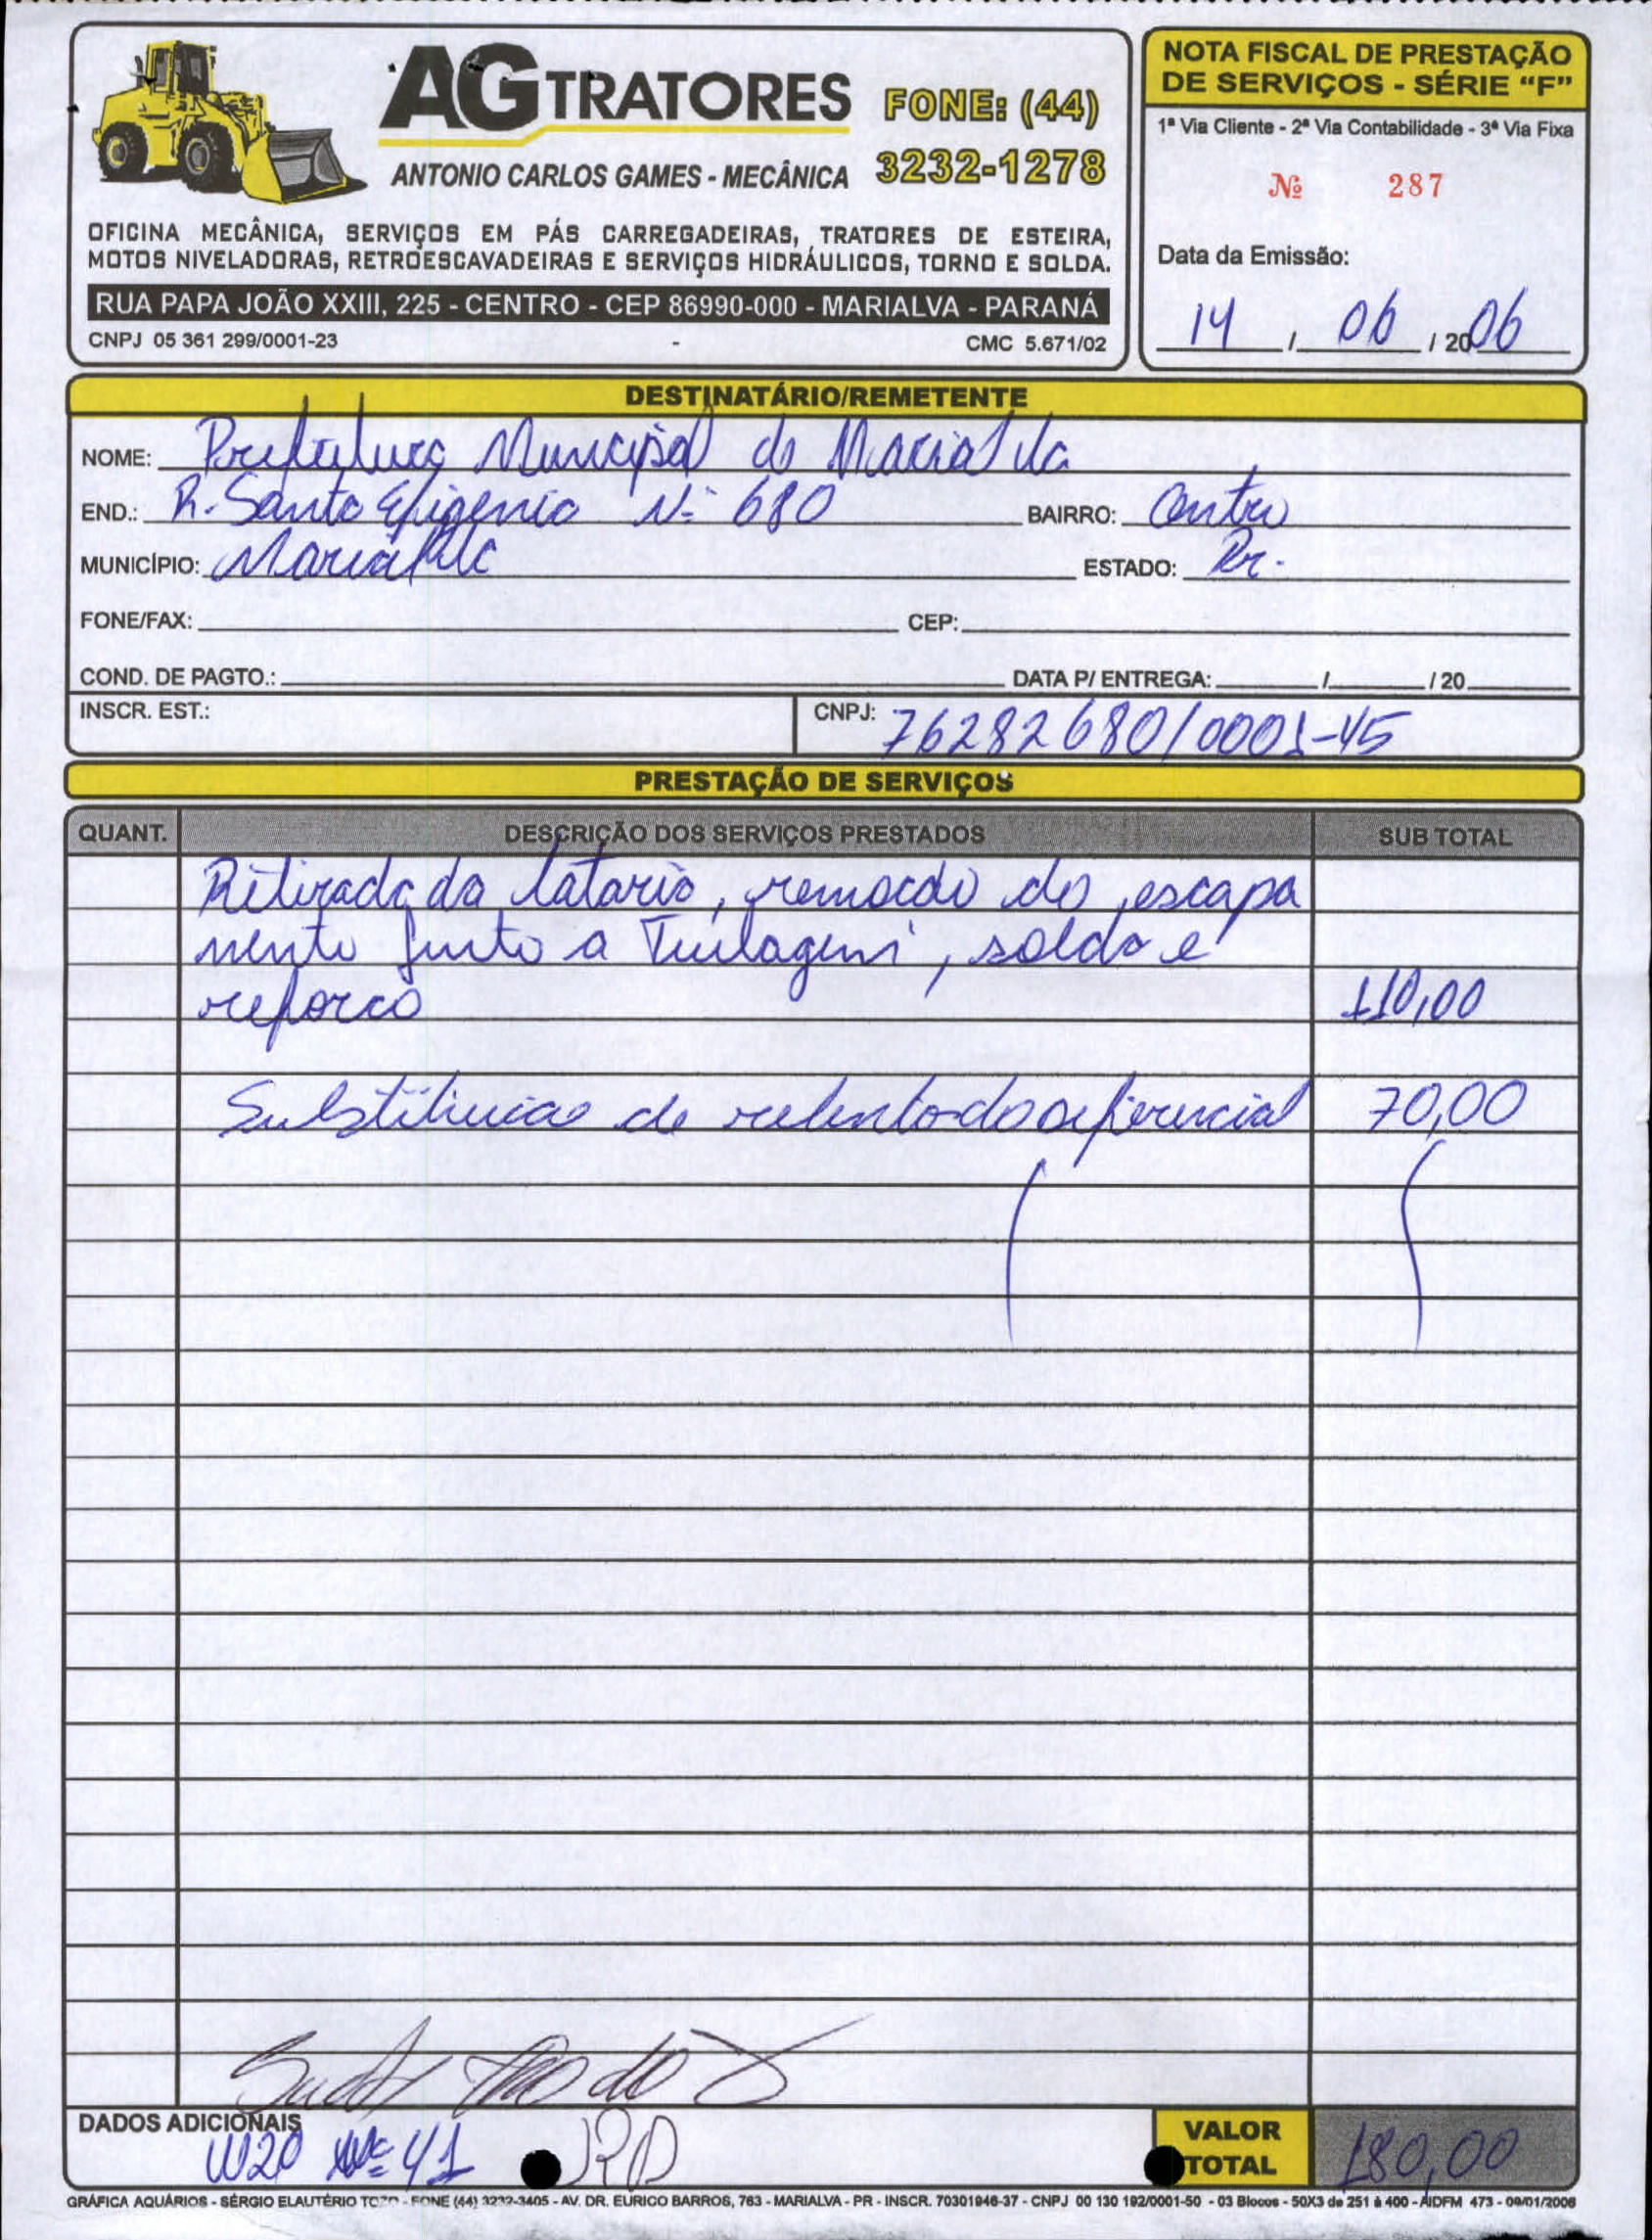 AG TRATORES
FONE: (44)
3232-1278
ANTONIO CARLOS GAMES - MECÂNICA
OFICINA MECÂNICA, SERVIÇOS EM PÁS CARREGADEIRAS, TRATORES DE ESTEIRA,
MOTOS NIVELADORAS, RETROESCAVADEIRAS E SERVIÇOS HIDRÁULICOS, TORNO E SOLDA.
RUA PAPA JOÃO XXIII, 225 - CENTRO - CEP 86990-000 - MARIALVA - PARANÁ
CNPJ 05 361 299/0001-23 - CMC 5.671/02
NOTA FISCAL DE PRESTAÇÃO
DE SERVIÇOS - SÉRIE “F”
1ª Via Cliente - 2ª Via Contabilidade - 3ª Via Fixa
Nº 287
Data da Emissão:
14 / 06 / 2006
DESTINATÁRIO/REMETENTE
NOME: Prefeitura Municipal de Marialva
END.: R. Santa Efigenia Nº 680 BAIRRO: Centro
MUNICÍPIO: Marialva ESTADO: Pr.
FONE/FAX: CEP:
COND. DE PAGTO.: DATA P/ ENTREGA: / / 20
INSCR. EST.: CNPJ: 76282680/0001-45
PRESTAÇÃO DE SERVIÇOS
QUANT. DESCRIÇÃO DOS SERVIÇOS PRESTADOS SUB TOTAL
Retirada da lataria, remocão do escapa
mento junto a , solda e
reforco 110,00
Substituicao de retentor do diferencial 70,00
DADOS ADICIONAIS
W20 Nº 41
VALOR
TOTAL 180,00
GRÁFICA AQUÁRIOS - SÉRGIO ELAUTÉRIO - FONE (44) 3232-3405 - AV. DR. EURICO BARROS, 763 - MARIALVA - PR - INSCR. 70301946-37 - CNPJ 00 130 192/0001-50 - 03 Blocos - 50X3 de 251 à 400 - AIDFM 473 - 09/01/2006